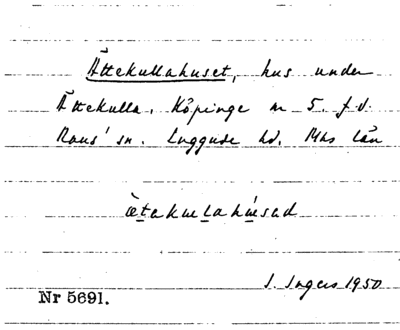 Ättekullahuset, hus under
Ättekulla, Köpinge nr 5. f.d.
Raus' sn. Luggude hd. Mhs län
ätakulahúsad
I. Ingers 1950
Nr 5691.